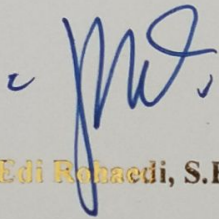 Edi Rohaedi, S.